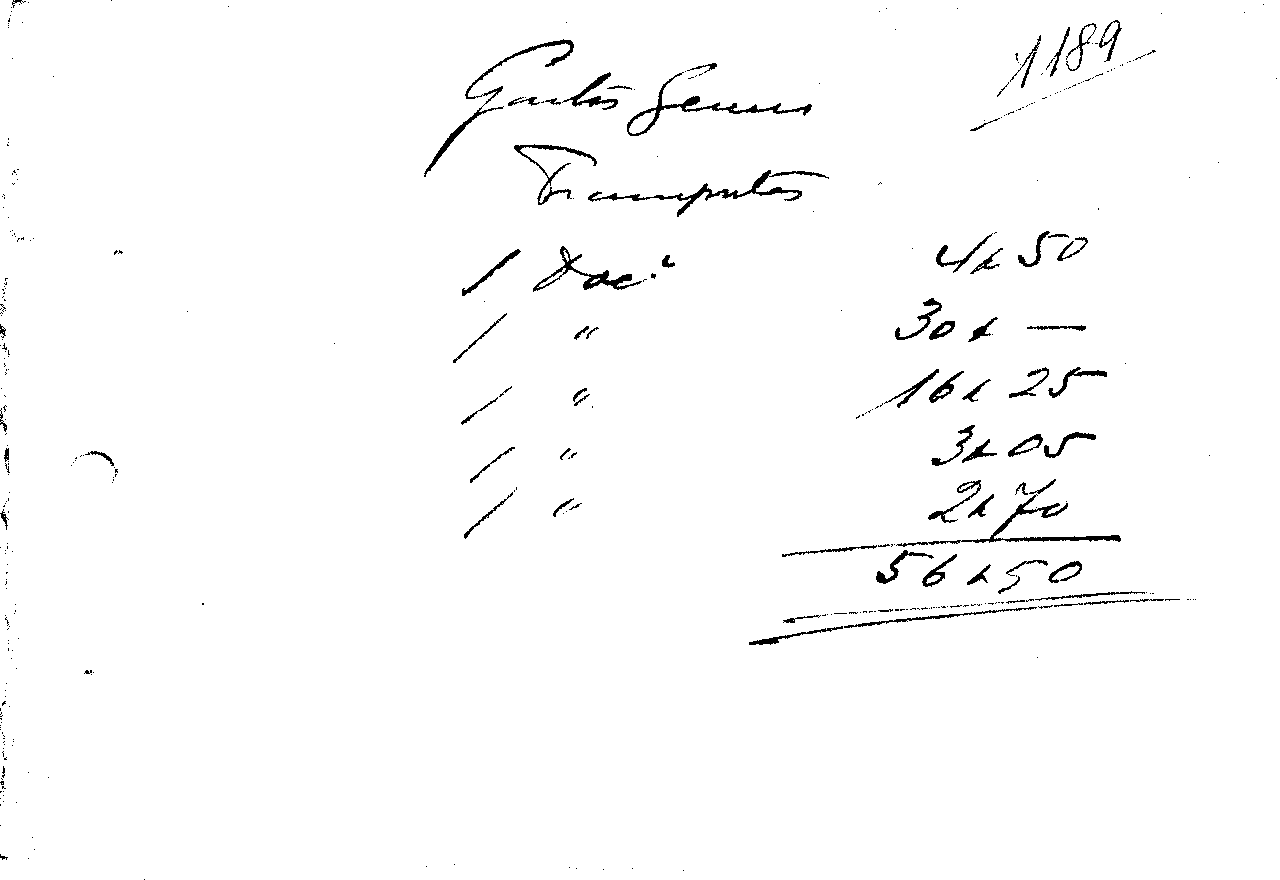 1189
Gastos Gerais
Transportes
1 Doc. 4$50
1 " 30$—
1 " 16$25
1 " 3$05
1 " 2$70
56$50